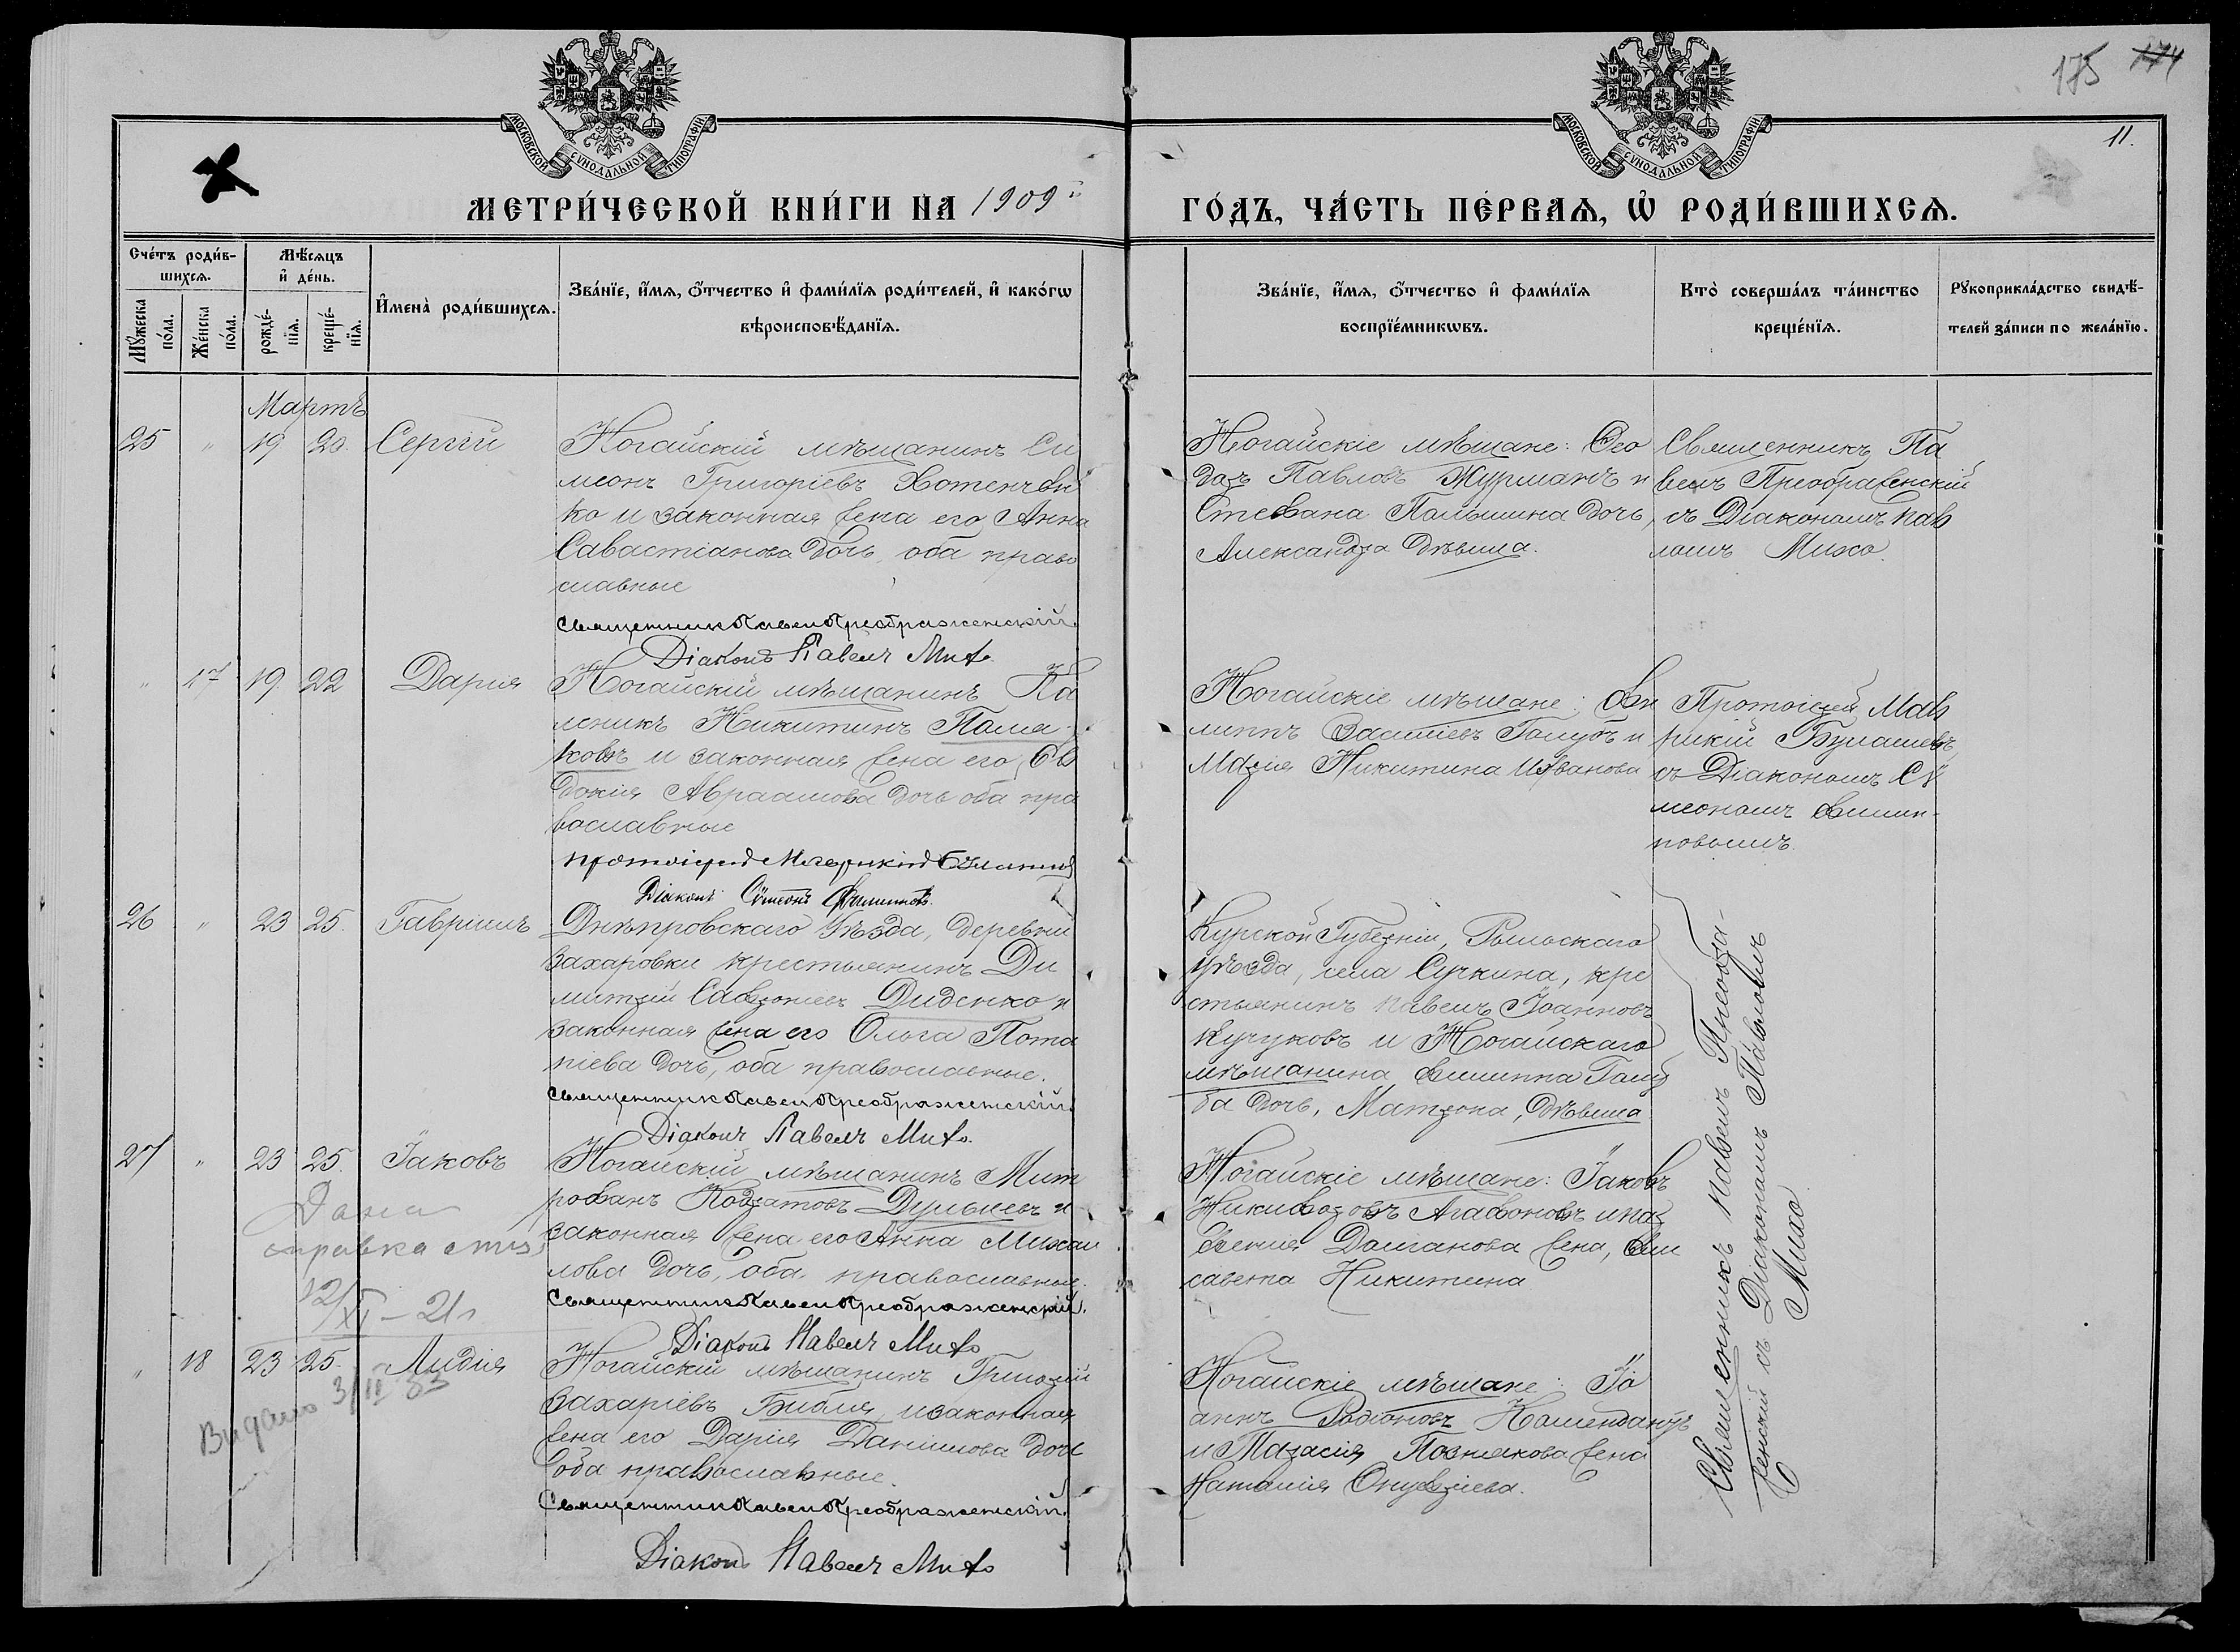 175 174
11.
МОСКОВСКОЙ СѴНОДАЛЬНОЙ ТИПОГРАФІИ
МОСКОВСКОЙ СѴНОДАЛЬНОЙ ТИПОГРАФІИ
МЕТРИ́ЧЕСКОЙ КНИ́ГИ НА 1909й
ГО́ДЪ, ЧА́СТЬ ПЕ́РВАѦ, Ѡ҆ РОДИ́ВШИХСѦ.
Сче́тъ роди́в-
шихсѧ.
Мꙋ́жеска
по́ла.
Же́нска
по́ла.
Мѣ́сѧцъ
и҆ де́нь.
рожде́-
нїѧ.
креще́-
нїѧ.
И҆мена̀ роди́вшихсѧ.
Зва́нїе, и҆́мѧ, ѻ҆́тчество и҆ фами́лїѧ роди́телей, и҆ како́гѡ
вѣроисповѣ́данїѧ.
Зва́нїе, и҆́мѧ, ѻ҆́тчество и҆ фами́лїѧ
воспрїе́мникѡвъ.
Кто̀ соверша́лъ та́инство
креще́нїѧ.
Рꙋкоприкла́дство свидѣ́-
телей за́писи по жела́нїю.
Мартъ
25 " 19 20. Сергій
Ногайскій мѣщанинъ Си
меонъ Григоріевъ Хотенчен
ко и законная жена его Анна
Савастіанова дочь, оба право
славные
Священникъ Павелъ Преображенскій.
Діаконъ Павелъ Михо.
Ногайскіе мѣщане: Ѳео
доръ Павловъ Журманъ и
Стефана Пальшина дочь,
Александра дѣвица.
Священникъ Па
велъ Преображенскій
съ Діакономъ Пав
ломъ Михо.
" 17 19. 22 Дарія
Ногайскій мѣщанинъ Ка
леникъ Никитинъ Полме
ковъ и законная жена его Ев
докія Авраамова дочь оба пра
вославные
Протоіерей Маврикій Булашевъ
Діаконъ Сѵмеонъ Филипповъ.
Ногайскіе мѣщане: Фи
липпъ Васильевъ Голубъ и
Марія Никитина Иванова
Протоіерей Мав
рикій Булашевъ
съ Діакономъ Сѵ
меономъ Филип-
повымъ.
26 " 23 25. Гавріилъ
Днѣпровскаго Уѣзда, деревни
Захаровки крестьянинъ Ди
митрій Софроніевъ Диденко и
законная жена его Ольга Пота
піева дочь, оба православные.
Священникъ Павелъ Преображенскій.
Діаконъ Павелъ Михо.
Курской Губерніи, Рыльскаго
уѣзда, села Сучкина, кре
стьянинъ Павелъ Іоанновъ
Кугуковъ и Ногайскаго
мѣщанина Филиппа Голу
ба дочь, Матрона, дѣвица
27 " 23 25. Іаковъ
Ногайскій мѣщанинъ Мит
рофанъ Кодратовъ Дульневъ и
законная жена его Анна Михаи
лова дочь, оба православные.
Священникъ Павелъ Преображенскій.
Діаконъ Павелъ Михо
Ногайскіе мѣщане: Іаковъ
Никифоровъ Агафоновъ и
Долганова жена, Ели
савета Никитина
Дана
справка
12/XI – 21г
" 18 23 25. Лидія
Видано 3/II 33
Ногайскій мѣщанинъ Григорій
Захаріевъ Библія и законная
жена его Дарія Даніилова дочь
оба православные.
Священникъ Павелъ Преображенскій.
Діаконъ Павелъ Михо
Ногайскіе мѣщане: Іо
аннъ Родіоновъ Комендантъ
и Тарасія Познякова жена
Наталія Онуфріева.
Священникъ Павелъ Преобра-
женскій съ Діакономъ Павломъ
Михо